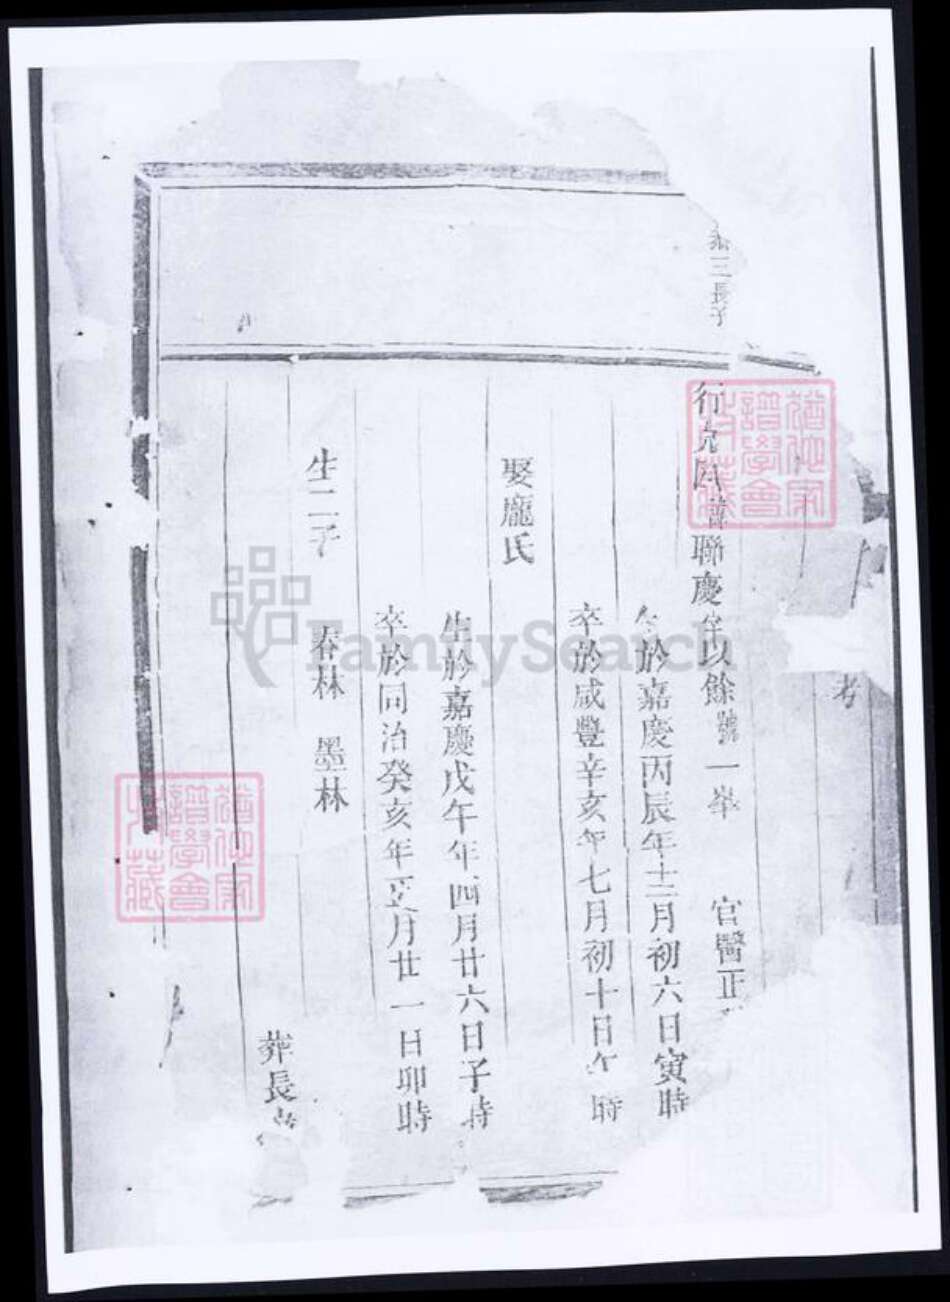 三長子
考
行 聯慶字以餘號一峯 官醫正
生於嘉慶丙辰年十二月初六日寅時
卒於咸豐辛亥年七月初十日午時
娶龐氏
生於嘉慶戊午年四月廿六日子時
卒於同治癸亥年正月廿一日卯時
生二子 春林 墨林
葬長
譜學會
譜學會
FamilySearch